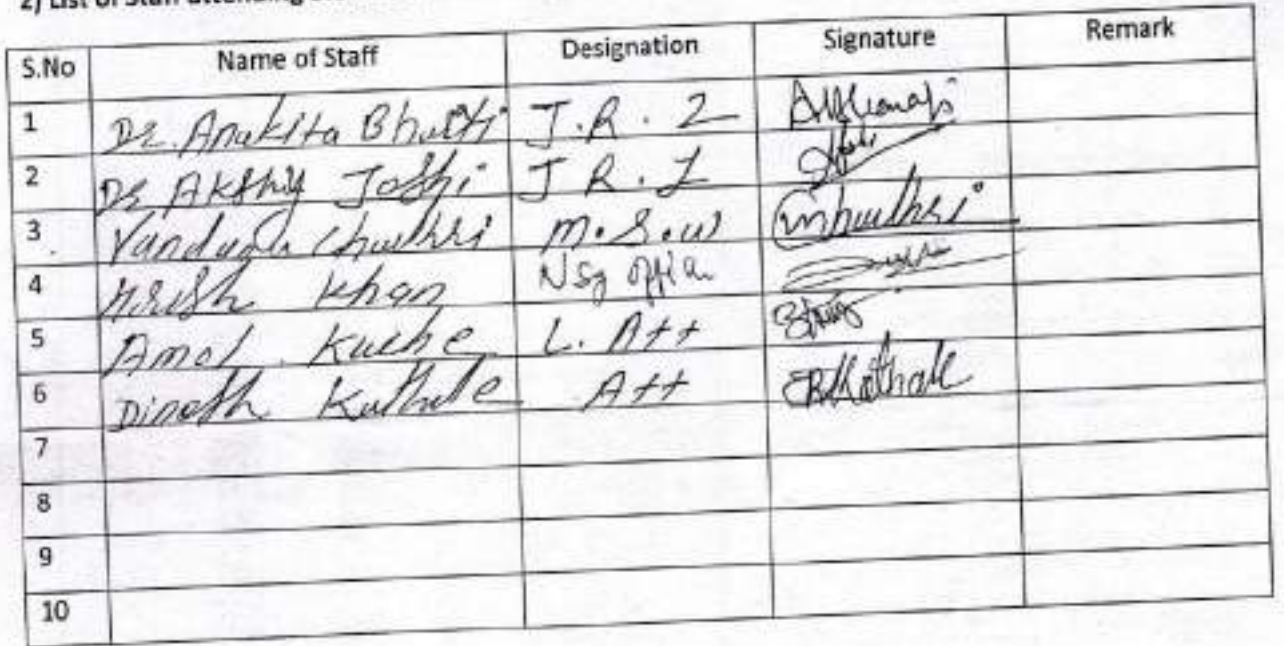 2) List of Staff attending
S.No Name of Staff Designation Signature Remark
1 Dr. Anukita Bhatti J.R. 2
2 Dr Akshy Joshi J R. 1
3 Vandana Chudhri M.S.W
4 Khan Nsg
5 Amol Kuche L. Att
6 Dinesh Kuthule Att
7
8
9
10